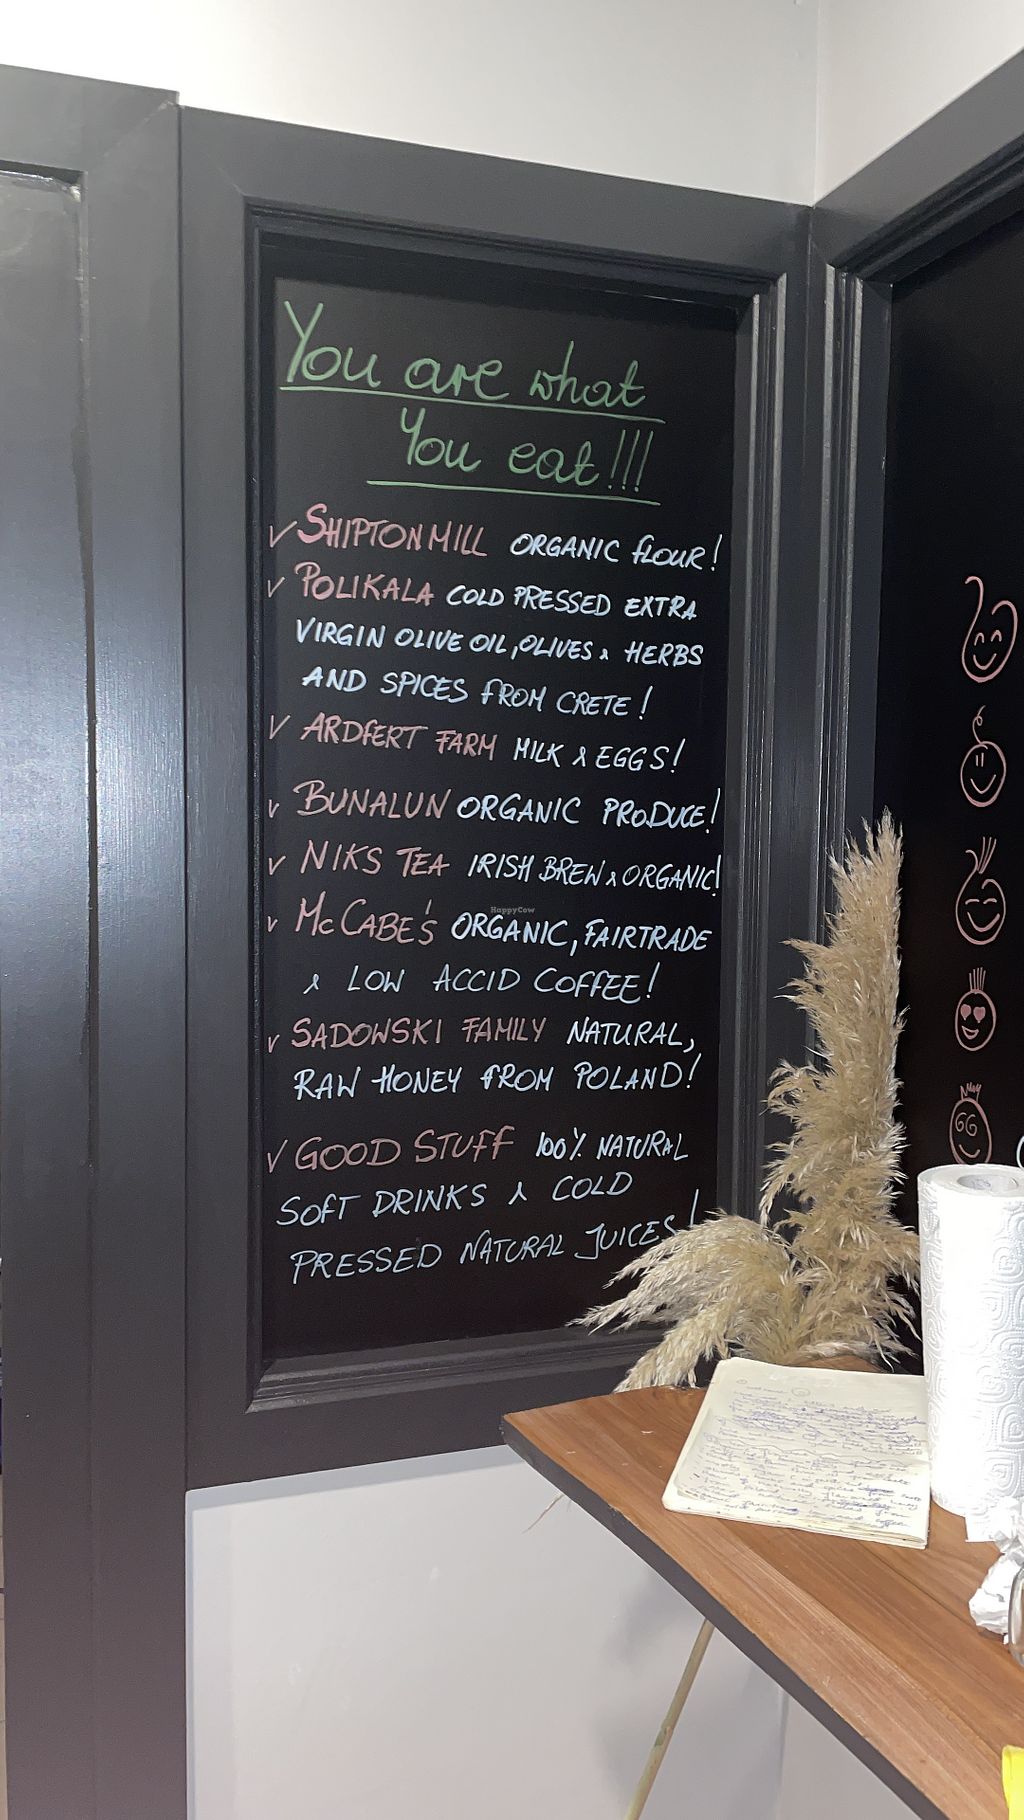 You are what
You eat!!!
✓ SHIPTON MILL ORGANIC FLOUR!
✓ POLIKALA COLD PRESSED EXTRA
VIRGIN OLIVE OIL, OLIVES & HERBS
AND SPICES FROM CRETE!
✓ ARDFERT FARM MILK & EGGS!
✓ BUNALUN ORGANIC PRODUCE!
✓ NIKS TEA IRISH BREW & ORGANIC!
HappyCow
✓ McCABE'S ORGANIC, FAIRTRADE
& LOW ACCID COFFEE!
✓ SADOWSKI FAMILY NATURAL,
RAW HONEY FROM POLAND!
✓ GOOD STUFF 100% NATURAL
SOFT DRINKS & COLD
PRESSED NATURAL JUICES!